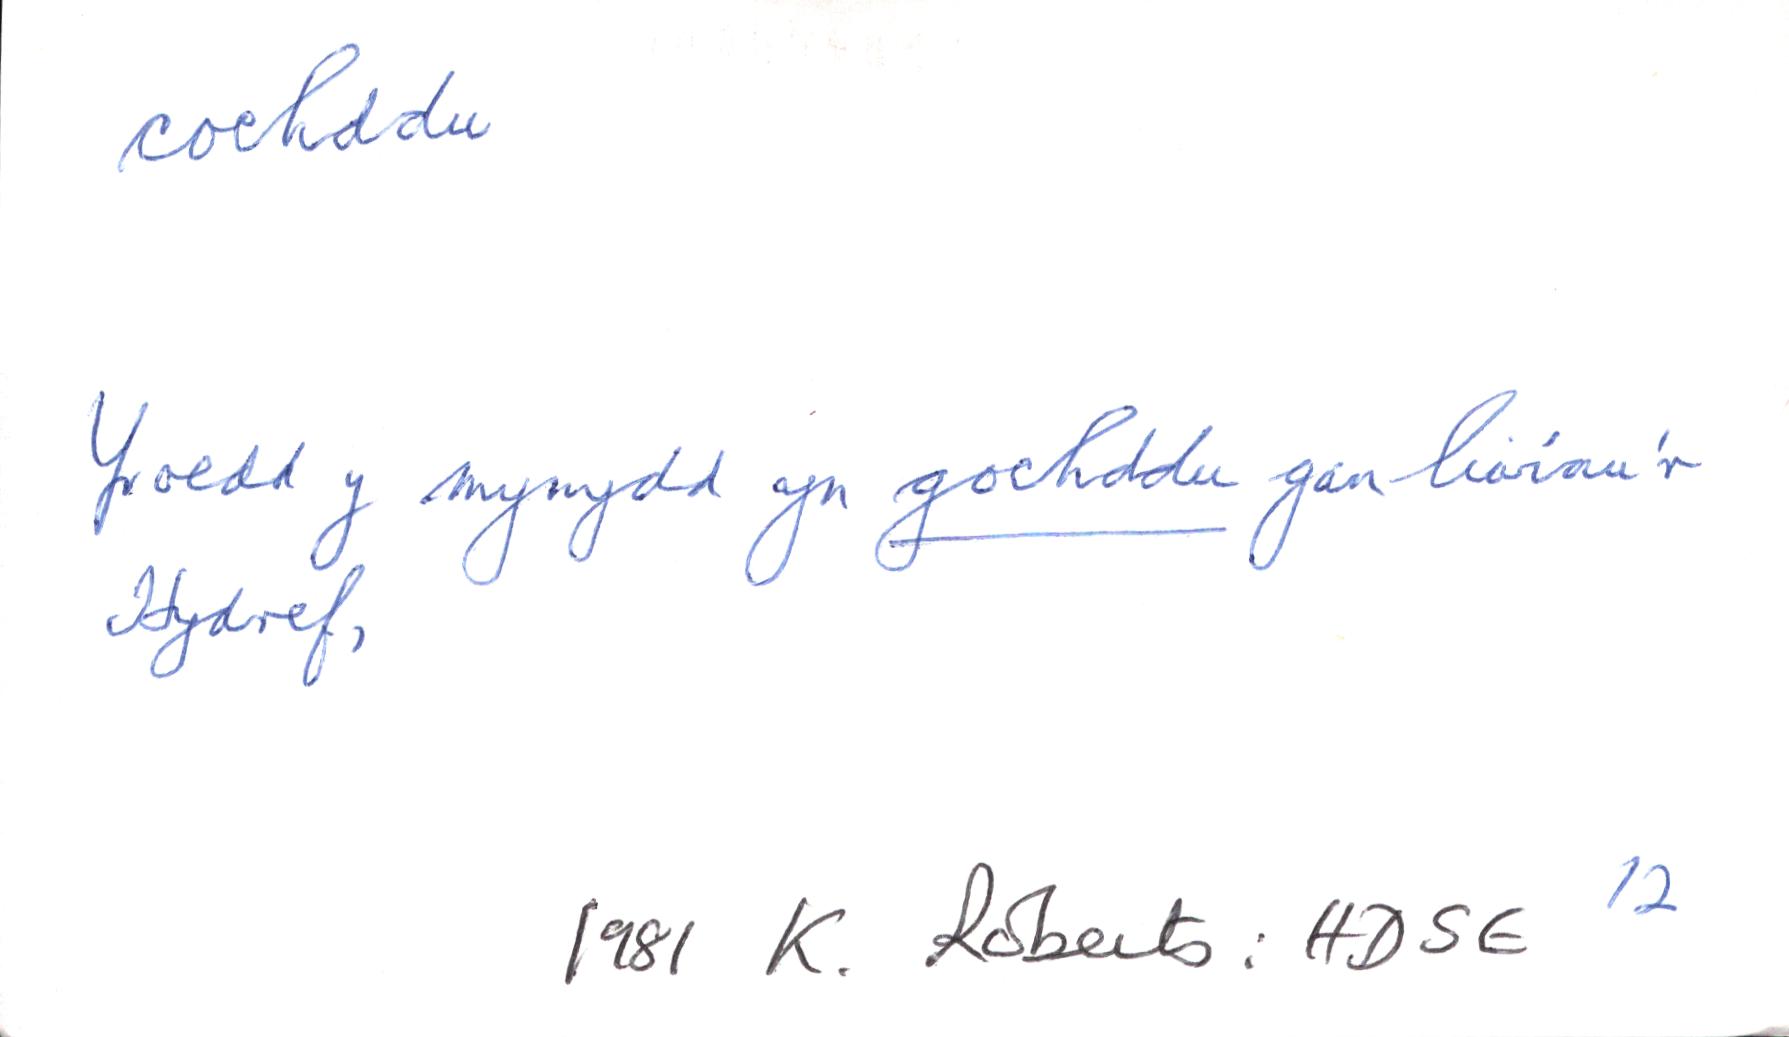 cochddu
Yroedd y mynydd yn gochddu gan liwiau'r
Hydref,
1981 K. Roberts: HDSE 12